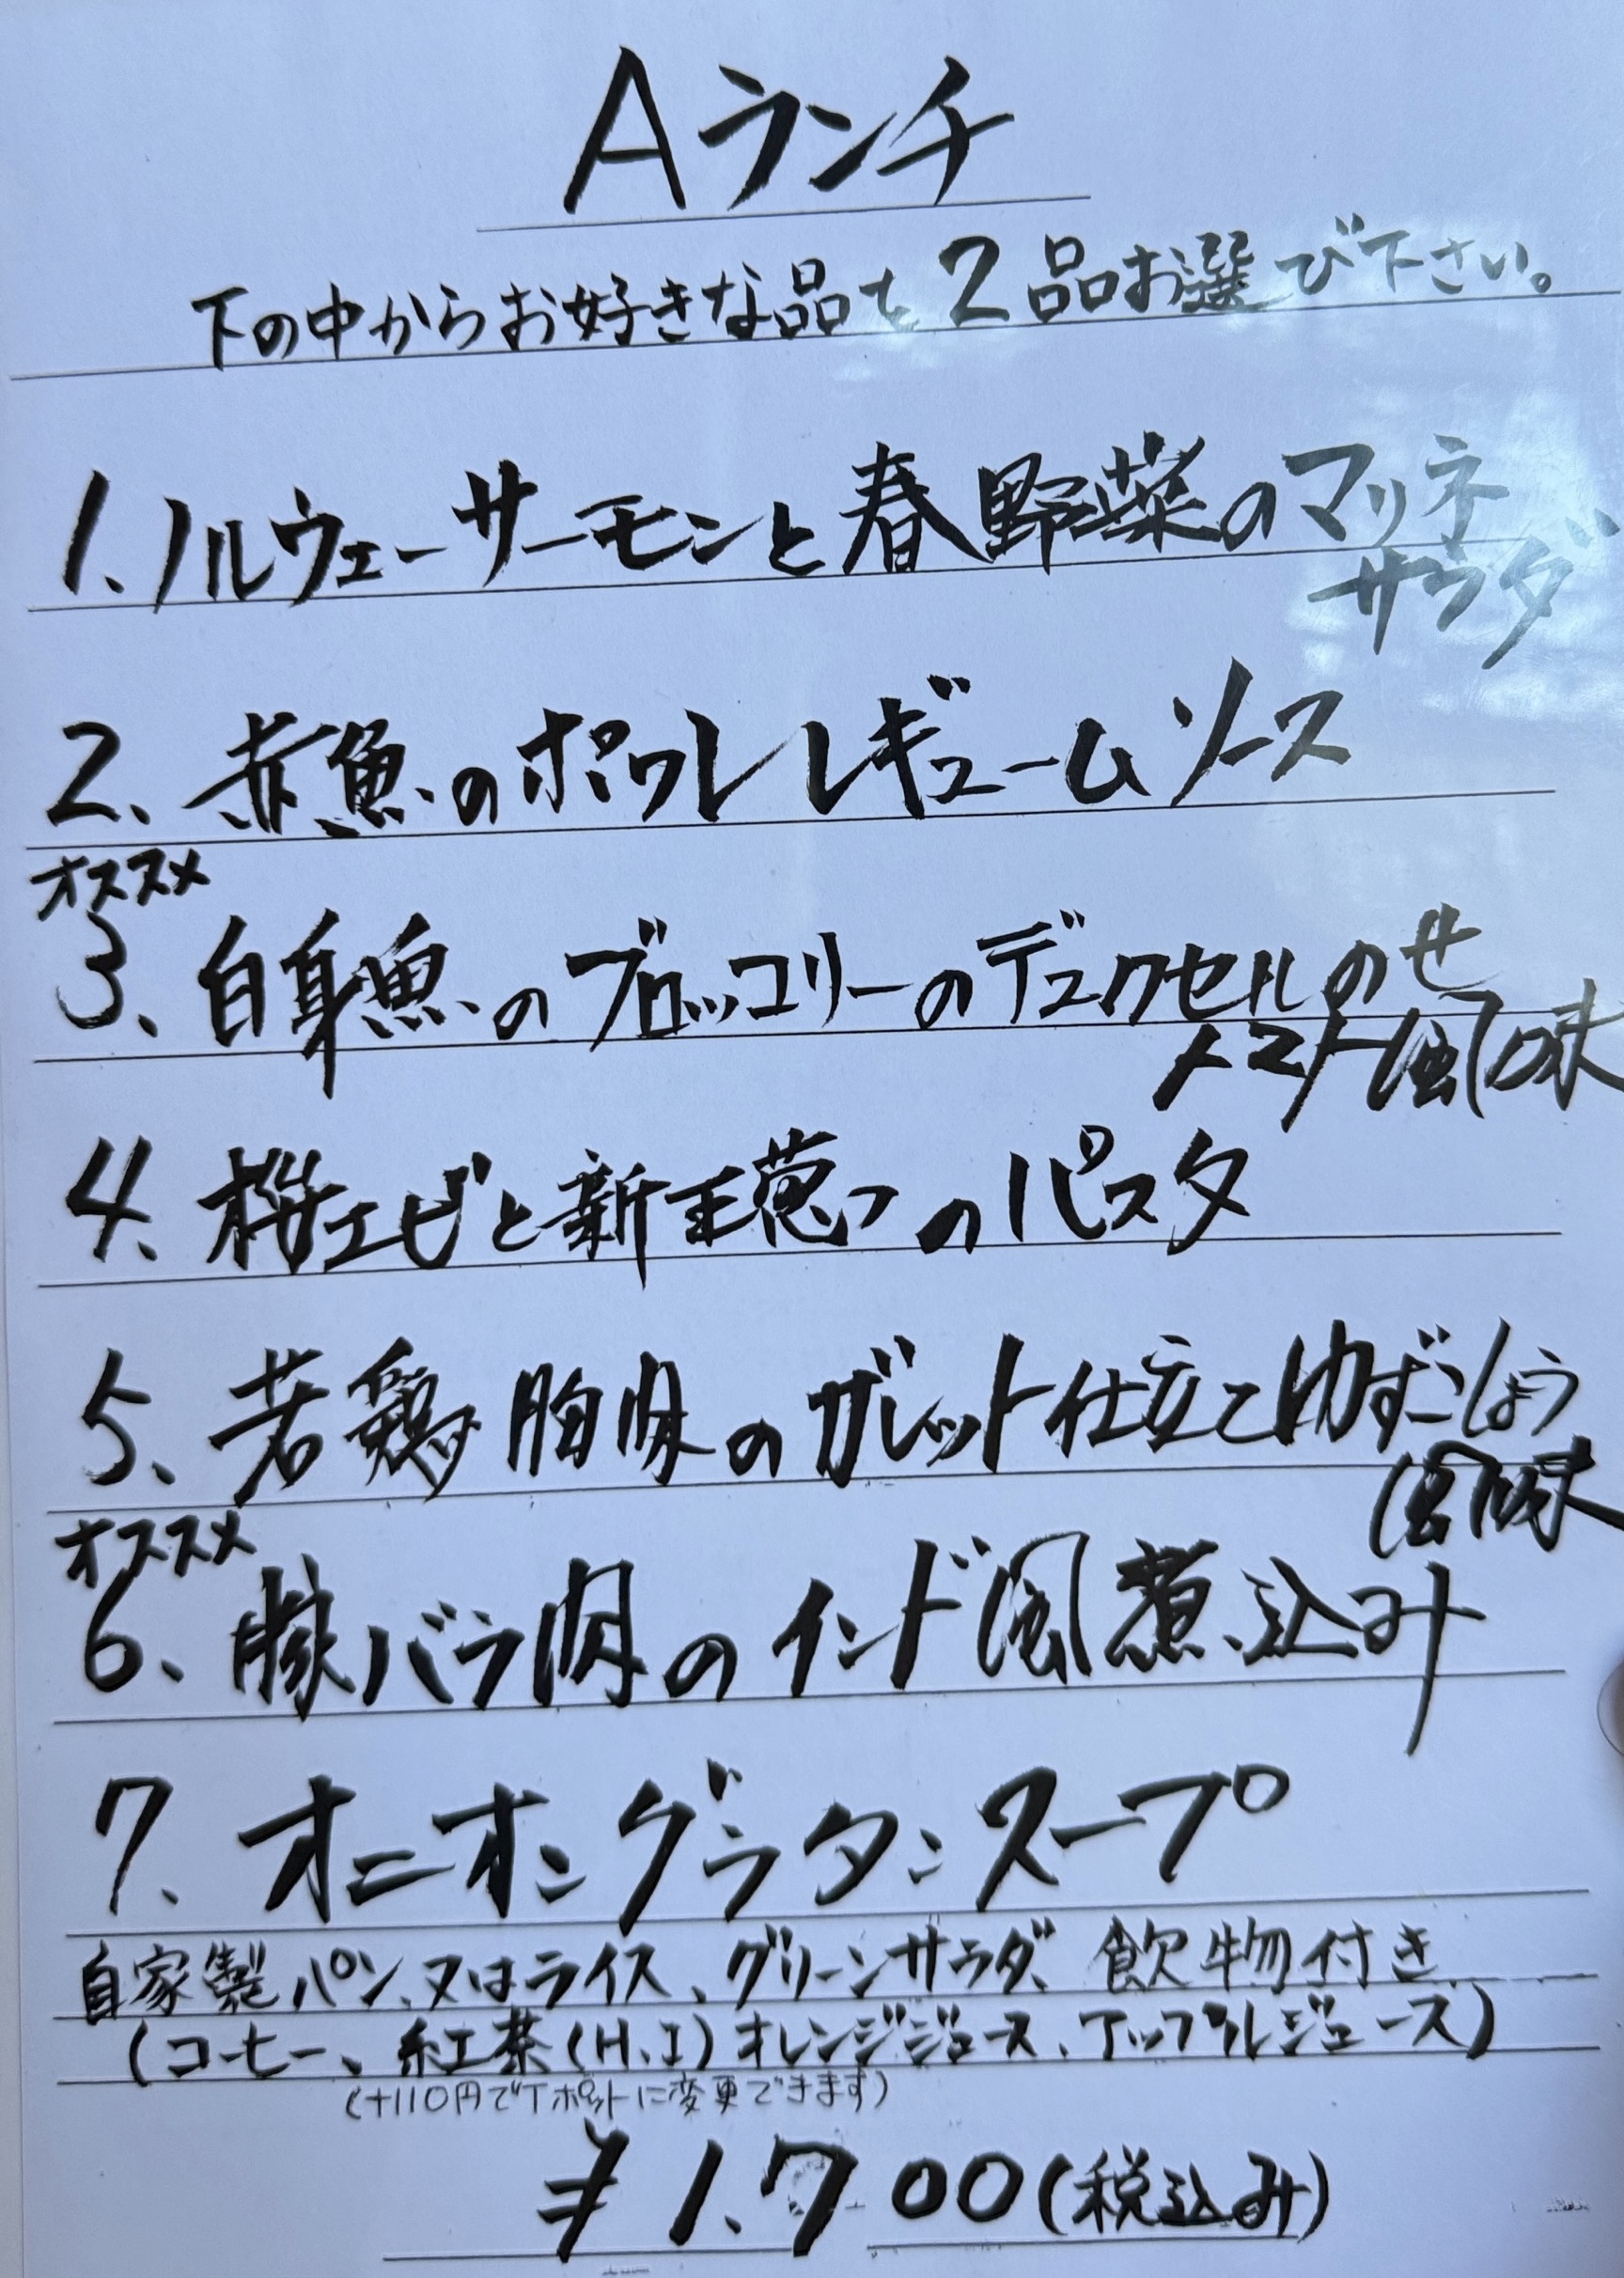 Aランチ
下の中からお好きな品を2品お選び下さい。
1、ノルウェーサーモンと春野菜のマリネ
サラダ
2、赤魚のポワレ レギュームソース
オススメ
3、白身魚のブロッコリーのデュクセルのせ
トマト風味
4、桜エビと新玉葱のパスタ
5、若鶏胸肉のガレット仕立てゆずこしょう
風味
オススメ
6、豚バラ肉のインド風煮込み
7、オニオングラタンスープ
自家製パン、又はライス、グリーンサラダ、飲物付き
(コーヒー、紅茶(H、I)オレンジジュース、アップルジュース)
(+110円でTポットに変更できます)
¥1.700(税込み)